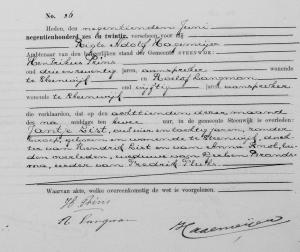 No. 26
Heden, den negentienden Juni
negentienhonderd zes en twintig, verscheen voor mij
Ambtenaar van den burgerlijken stand der Gemeente STEENWIJK:
Hendrikus Prins
oud drie en zeventig jaren, aanspreker wonende
te Steenwijk en Roelof Langman
oud vijftig jaren, aanspreker
wonende te Steenwijk
die verklaarden, dat op achttienden dezer maand
des na middags ten twee ure, in de gemeente Steenwijk is overleden:
Jantje Gist, oud een en tachtig jaren, zonder
beroep, geboren en wonende te Steenwijk, doch-
ter van Hendrik Gist en van Anna Knol, bei-
den overleden, weduwe van
van Fredrik
Waarvan akte, welke overeenkomstig de wet is voorgelezen.
H. Prins
R. Langman